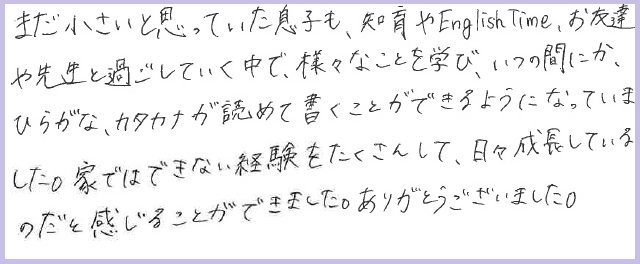 まだ小さいと思っていた息子も、知育やEnglish Time、お友達
や先生と過ごしていく中で、様々なことを学び、いつの間にか、
ひらがな、カタカナが読めて書くことができるようになっていま
した。家ではできない経験をたくさんして、日々成長している
のだと感じることができました。ありがとうございました。